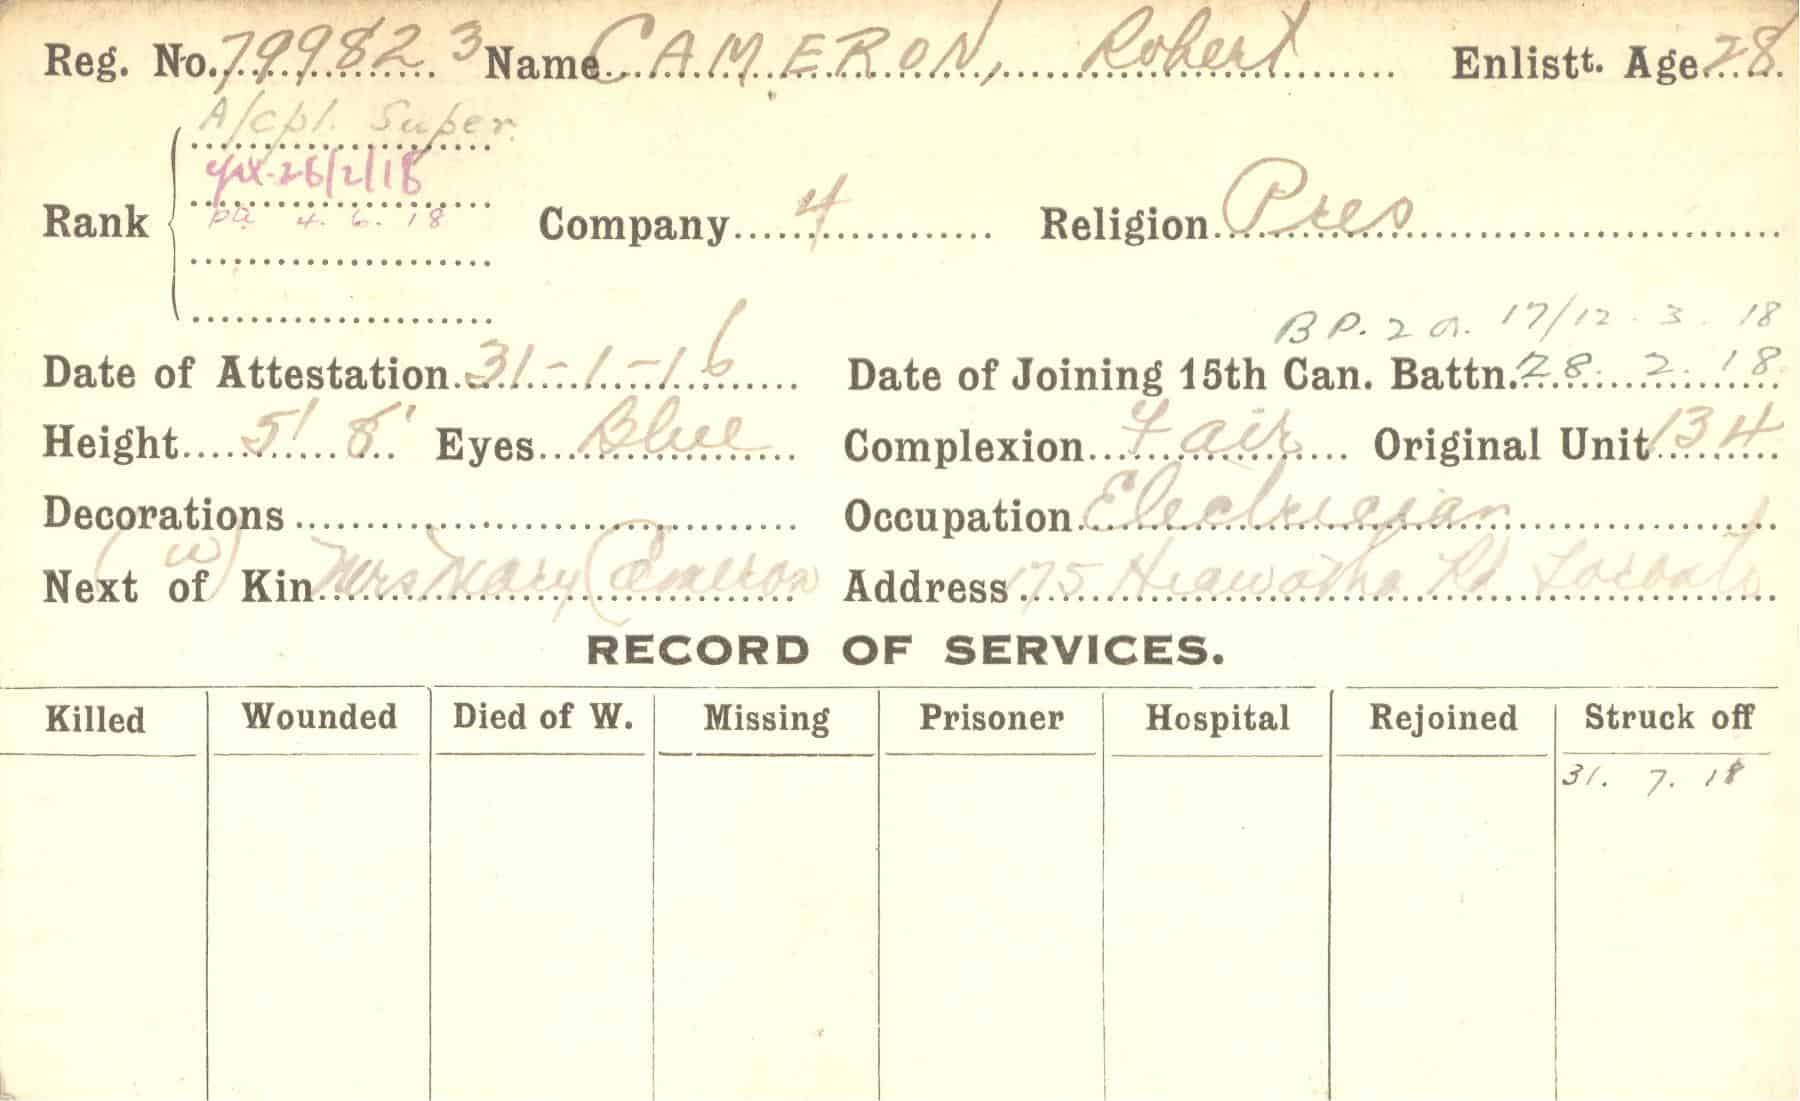 Reg. No. 799823 Name CAMERON, Robert Enlistt. Age 28
A/cpl. Super.
26/2/18
Rank 4. 6. 18 Company 4 Religion Pres
B P. 2 a. 17/12. 3. 18
Date of Attestation 31-1-16 Date of Joining 15th Can. Battn. 28. 2. 18
Height 5' 8" Eyes Blue Complexion Fair Original Unit 134
Decorations Occupation Electrician
(W)
Next of Kin Mrs Mary Cameron Address 175 Hiawatha Rd Toronto
RECORD OF SERVICES.
Killed Wounded Died of W. Missing Prisoner Hospital Rejoined Struck off
31. 7. 18